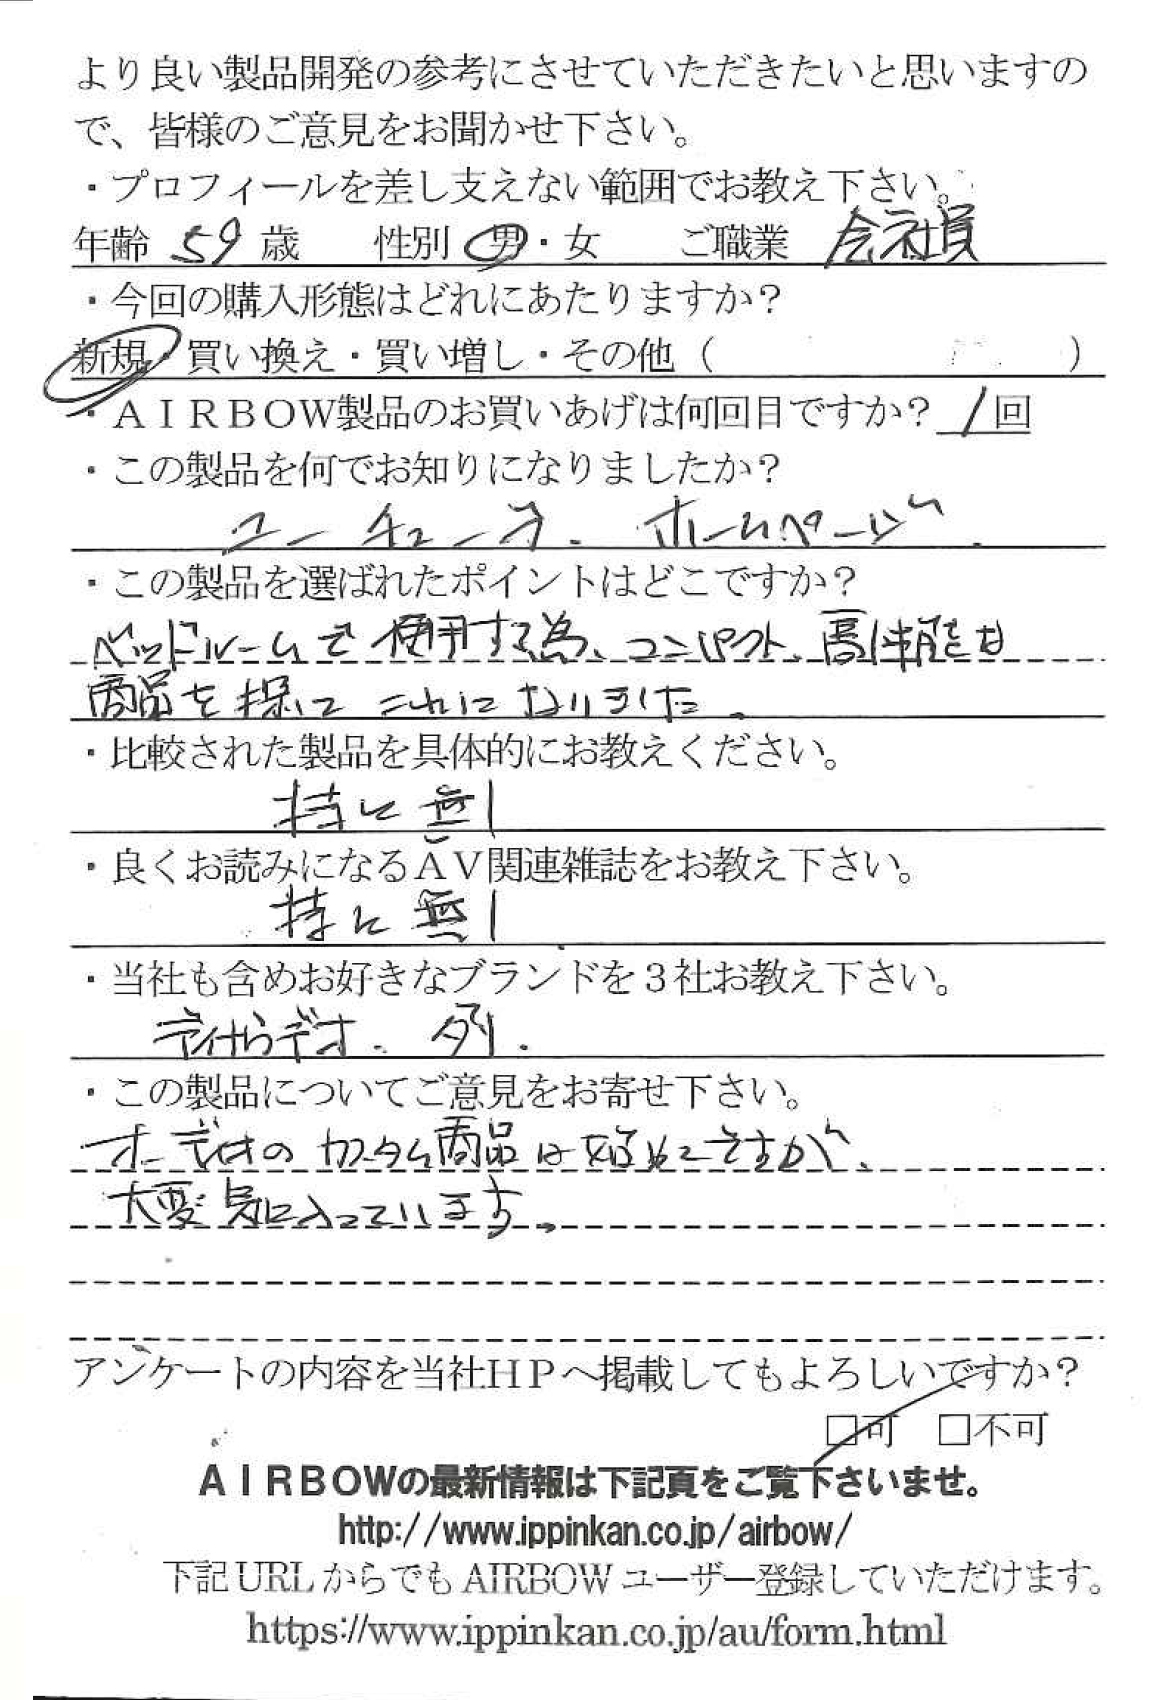 より良い製品開発の参考にさせていただきたいと思いますの
で、皆様のご意見をお聞かせ下さい。
・プロフィールを差し支えない範囲でお教え下さい。
年齢 59 歳 性別 男・女 ご職業 会社員
・今回の購入形態はどれにあたりますか？
新規・買い換え・買い増し・その他（ ）
・ＡＩＲＢＯＷ製品のお買いあげは何回目ですか？ 1回
・この製品を何でお知りになりましたか？
ユーチューブ、ホームページ
・この製品を選ばれたポイントはどこですか？
ベッドルームで使用する為、コンパクト、高性能な
商品を探してこれになりました。
・比較された製品を具体的にお教えください。
特に無し
・良くお読みになるＡＶ関連雑誌をお教え下さい。
特に無し
・当社も含めお好きなブランドを３社お教え下さい。
オーディオのカスタム商品は始めてですが、
・この製品についてご意見をお寄せ下さい。
大変気に入っています。
アンケートの内容を当社ＨＰへ掲載してもよろしいですか？
□可 □不可
ＡＩＲＢＯＷの最新情報は下記頁をご覧下さいませ。
http://www.ippinkan.co.jp/airbow/
下記URLからでもAIRBOWユーザー登録していただけます。
https://www.ippinkan.co.jp/au/form.html